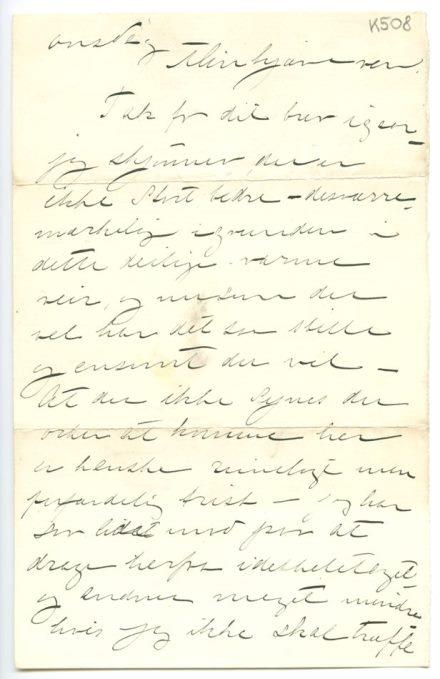 K508
onsdag
Min kjære ven.
Tak for dit brev igaar –
jeg skjønner, du er
ikke stort bedre – desværre –
mærkelig i grunden i
dette deilige varme
veir, og du
vel har det saa stille
og ensomt du vil –
At du ikke synes du
orker at komme her
er kanske rimeligt men
forfærdelig trist – jeg har
saa lidet mod paa at
drage herfra idethele taget –
og endnu meget mindre
hvis jeg ikke skal træffe